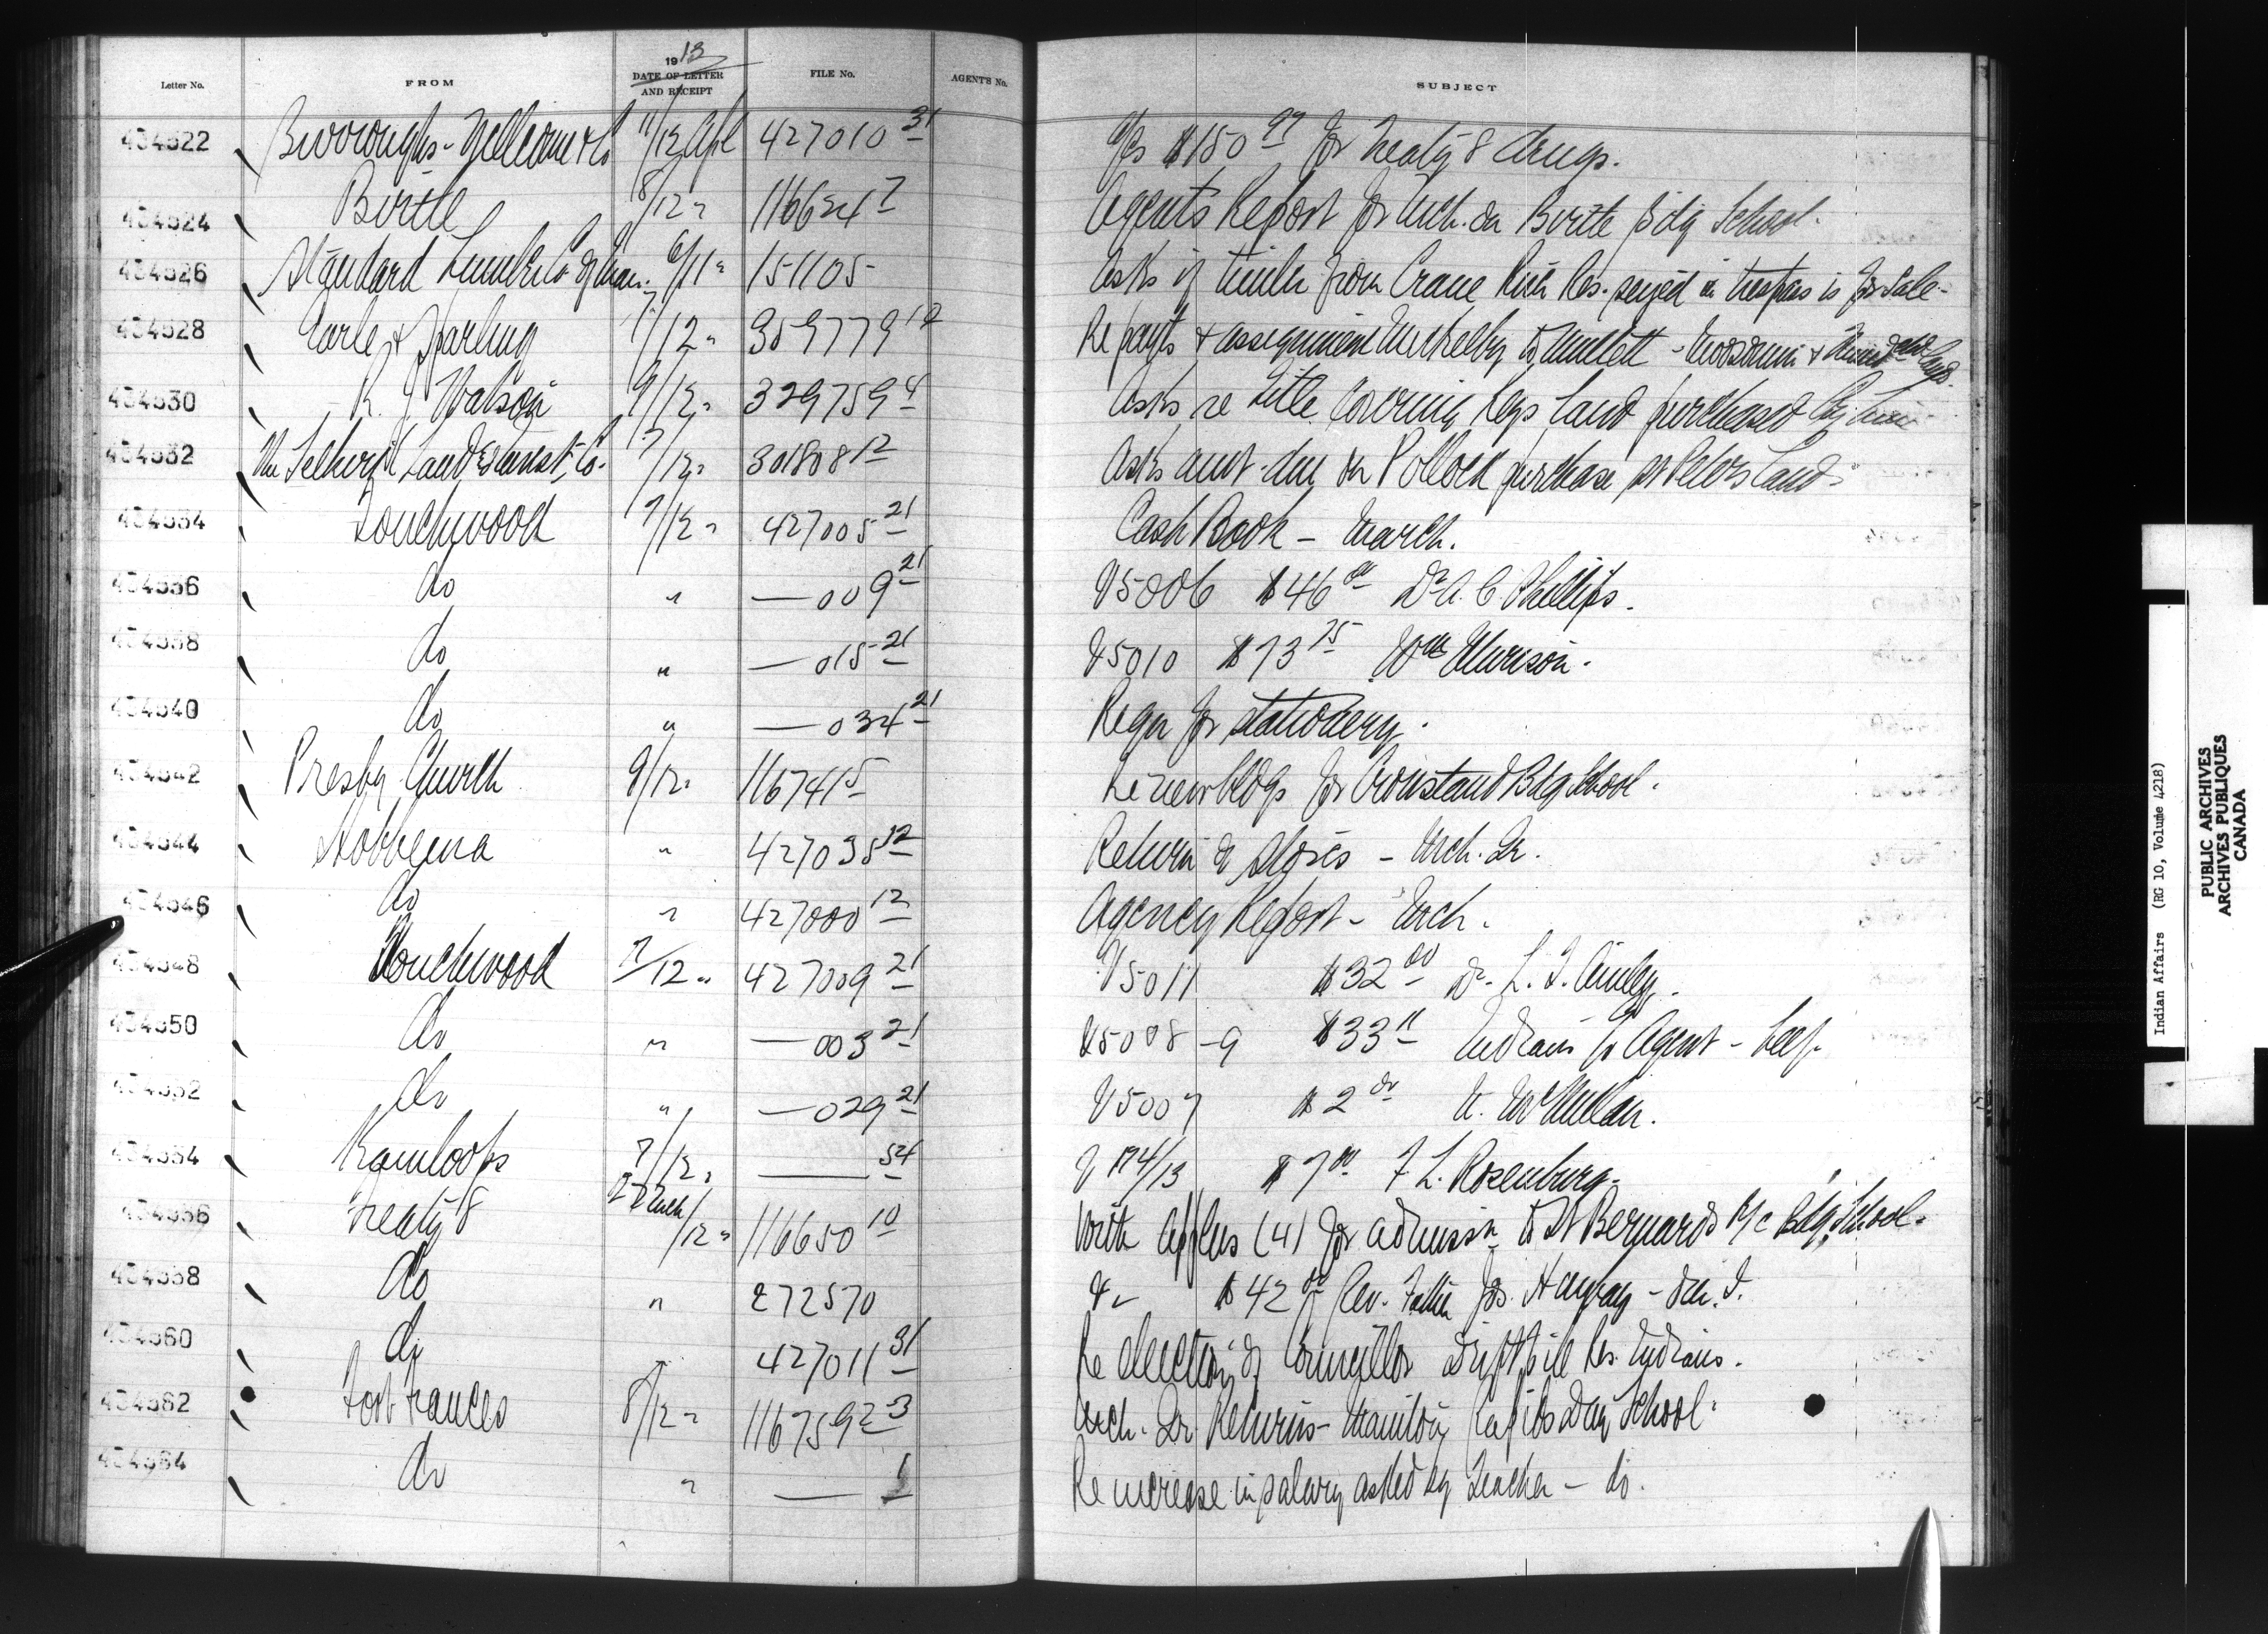 Letter No. FROM 1913 DATE OF LETTER AND RECEIPT FILE No. AGENT'S No. SUBJECT
434522 Burroughs-Wellcome & Co 11/12 Apl 427010 31 a/c $150 97 for Treaty 8 drugs.
434524 Birtle 8/12 " 116624 7 Agent's Report for Mch. on Birtle Bdg School.
434526 Standard Lumber Co of Man. 6/11 " 151105 Asks if timber from Crane River Res. seized in trespass is for sale.
434528 Earle & Sparling 7/12 " 359779 12 Re payts & assignment to - Moosomin &
434530 R. J. Watson 9/12 " 329759 4 Asks re title covering Keys Land purchased by him
434532 The Selkirk Land & Invest. Co. 7/12 " 301808 12 Asks amt. due on Pollock purchase St Peters Land.
434534 Touchwood 7/12 " 427005 21 Cash Book - March.
434536 do " — 009 21 V5006 $46 00 Dr A. C. Phillips.
434538 do " — 015 21 V5010 $73 75 Wm Murison.
434540 do " — 034 21 Reqn for stationery.
434542 Presby. Church 9/12 " 116741 5 Re new bldgs for Crowstand Bdg School.
434544 Hobbema " 427035 12 Return of Stores - Mch. Qr.
434546 do " 427000 12 Agency Report - Mch.
434548 Touchwood 7/12 " 427009 21 V5011 $32 00 Dr. L. J.
434550 do " — 003 21 V5008-9 $33 11 Indians p Agent - beef
434552 do " — 029 21 V5007 $2 00 McMillan.
434554 Kamloops 7/12 " — 54 V 174/13 $7 00 F L. Rosenburg.
434556 Treaty 8 27 Mch/12 " 116650 10 With applns (4) for admissn to St Bernards R/c Bdg. School.
434558 do " 272570 V— $42 00 Rev. Father Jos.
434560 do " 427011 31 Re election of Councillor Driftpile Res. Indians.
434562 Fort Frances 8/12 " 116759 2 3 Mch. Qr. Returns - Manitou Rapids Day School.
434564 do " — 1 Re increase in salary asked by teacher - do.
Indian Affairs (RG 10, Volume 4218)
PUBLIC ARCHIVES
ARCHIVES PUBLIQUES
CANADA